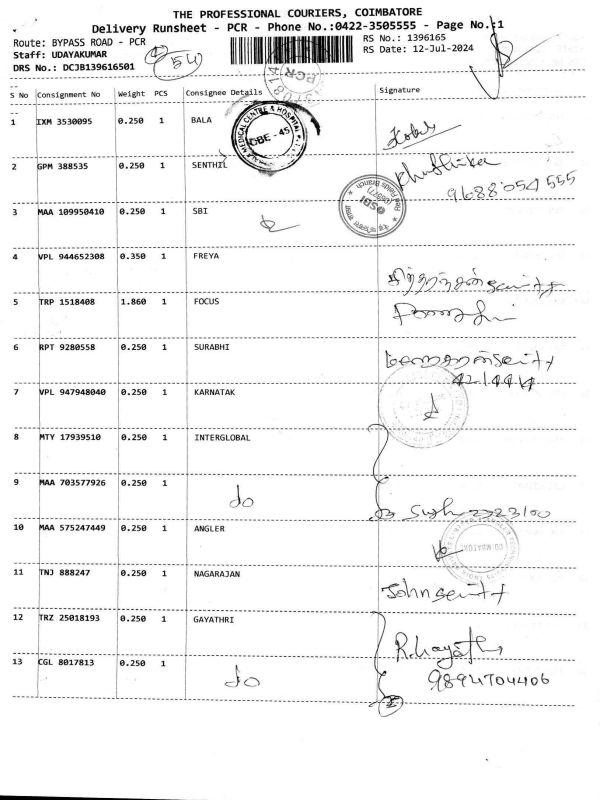 THE PROFESSIONAL COURIERS, COIMBATORE
Delivery Runsheet - PCR - Phone No.:0422-3505555 - Page No.:1
Route: BYPASS ROAD - PCR
RS No.: 1396165
Staff: UDAYAKUMAR
RS Date: 12-Jul-2024
DRS No.: DCJB139616501
S No Consignment No Weight PCS Consignee Details Signature
1 IXM 3530095 0.250 1 BALA
2 GPM 388535 0.250 1 SENTHIL
9688 054 555
3 MAA 109950410 0.250 1 SBI
4 VPL 944652308 0.350 1 FREYA
5 TRP 1518408 1.860 1 FOCUS
6 RPT 9280558 0.250 1 SURABHI
7 VPL 947948040 0.250 1 KARNATAK
8 MTY 17939510 0.250 1 INTERGLOBAL
9 MAA 703577926 0.250 1 do
10 MAA 575247449 0.250 1 ANGLER
11 TNJ 888247 0.250 1 NAGARAJAN
John
12 TRZ 25018193 0.250 1 GAYATHRI
13 CGL 8017813 0.250 1 do
9894704406